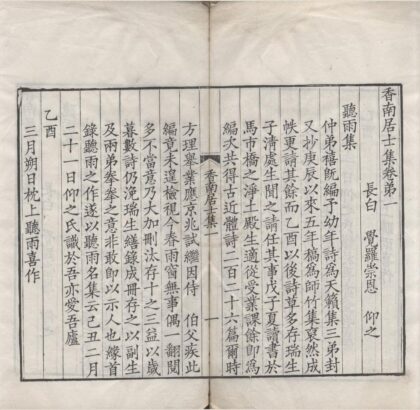 香南居士集卷第一
長白 覺羅崇恩 仰之
聽雨集
仲弟禧旣編予幼年詩爲天籟集三弟封
又抄庚辰以來五年稿爲師竹集裒然成
帙更請其餘而乙酉以後詩草多存瑞生
子淸處生閒之請任其事戊子夏讀書於
馬市橋之淨土殿生適從受業課餘即爲
編次共得古近體詩二百二十六篇爾時
香南居士集一
一
方理舉業應京兆試繼因侍 伯父疾此
編竟未遑檢視今春雨窗無事偶 翻閱
多不當意乃大加刪汰存十之三益以歲
暮數詩仍浼瑞生繕錄成冊存之以副生
及兩弟拳拳之意非敢即以示人也緣首
錄聽雨之作遂以聽雨名集云己丑二月
二十一日仰之氏識於吾亦愛吾廬
乙酉
三月朔日枕上聽雨喜作